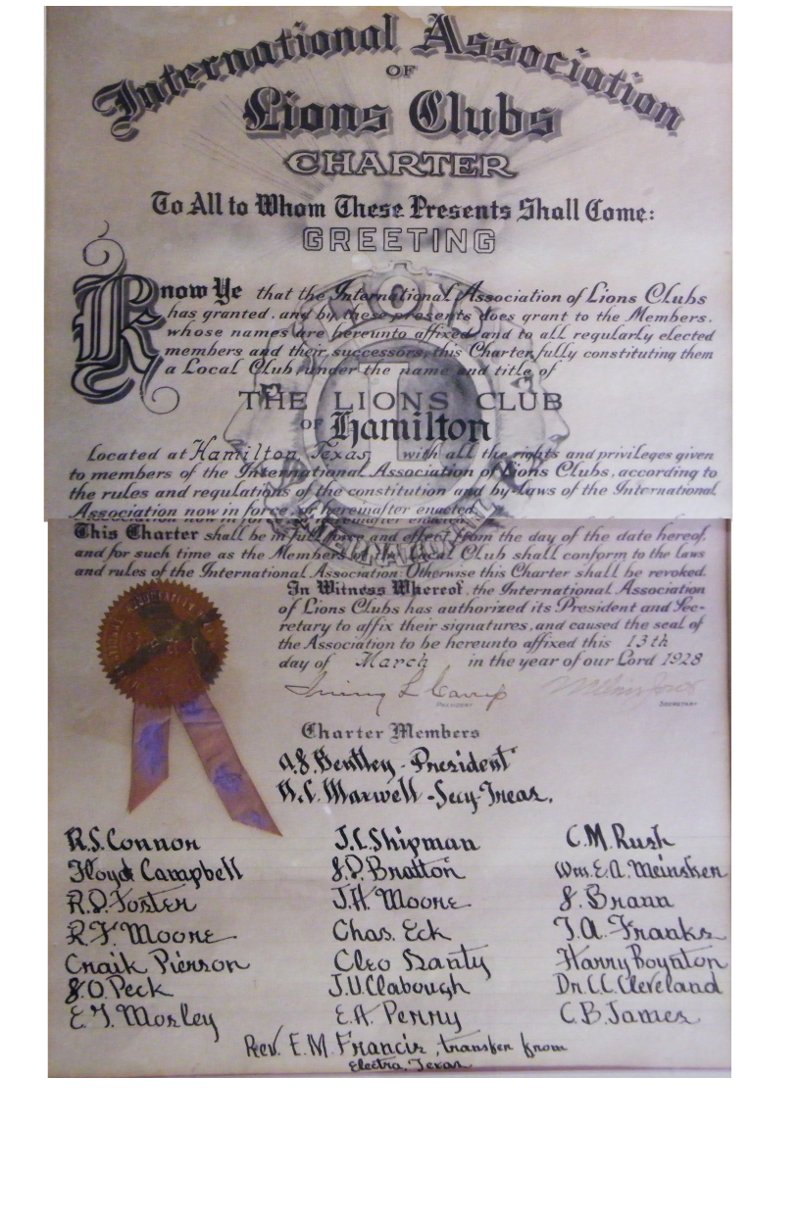 International Association
OF
Lions Clubs
CHARTER
To All to Whom These Presents Shall Come:
GREETING
Know Ye that the International Association of Lions Clubs
has granted, and by these presents does grant to the Members,
whose names are hereunto affixed and to all regularly elected
members and their successors, this Charter, fully constituting them
a Local Club, under the name and title of
THE LIONS CLUB
OF Hamilton
Located at Hamilton, Texas with all the rights and privileges given
to members of the International Association of Lions Clubs, according to
the rules and regulations of the constitution and by-laws of the International
Association now in force, or hereinafter enacted.
This Charter shall be in full force and effect from the day of the date hereof,
and for such time as the Members of the Local Club shall conform to the laws
and rules of the International Association: Otherwise this Charter shall be revoked.
In Witness Whereof, the International Association
of Lions Clubs has authorized its President and Sec-
retary to affix their signatures, and caused the seal of
the Association to be hereunto affixed this 13th
day of March in the year of our Lord 1928
PRESIDENT SECRETARY
Charter Members
Bentley - President
Maxwell - Secy-Treas.
R.S. Connor J.L. Shipman C.M. Rush
Floyd Campbell Bratton Wm. E.A. Meinsken
Foster J.H. Moore Brann
R.F. Moore Chas. Eck Franks
Craik Pierson Cleo Harry Boynton
Peck J.U. Clabough Dr. C.C. Cleveland
Morley E.A. Perry C.B. James
Rev. E.M. Francis, transfer from
Electra, Texas